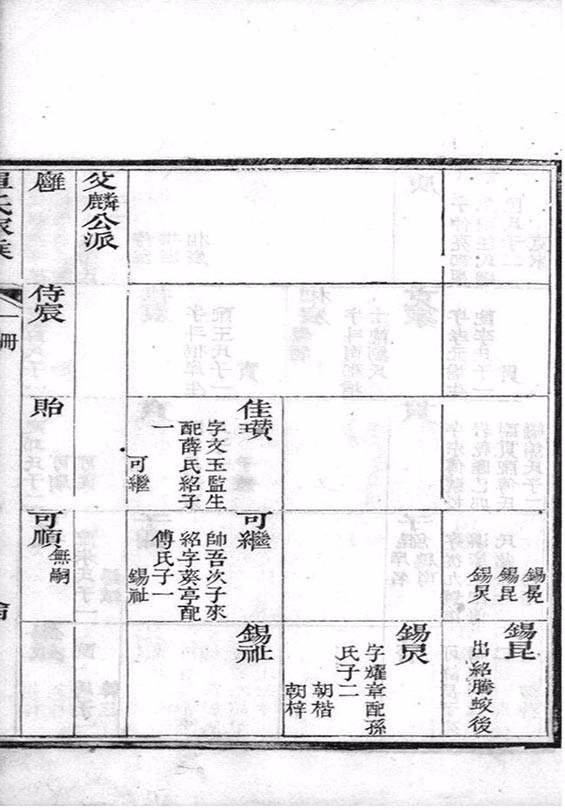 錫冕
錫昆
錫炅
錫昆
出紹騰蛟後
錫炅
字耀章配孫
氏子二
朝楷
朝梓
佳瓚
字文玉監生
配薛氏紹子
一
可繼
可繼
帥吾次子來
紹字葵亭配
傅氏子一
錫祉
錫祉
父麟公派
侍宸
貽
可順
無嗣
一冊